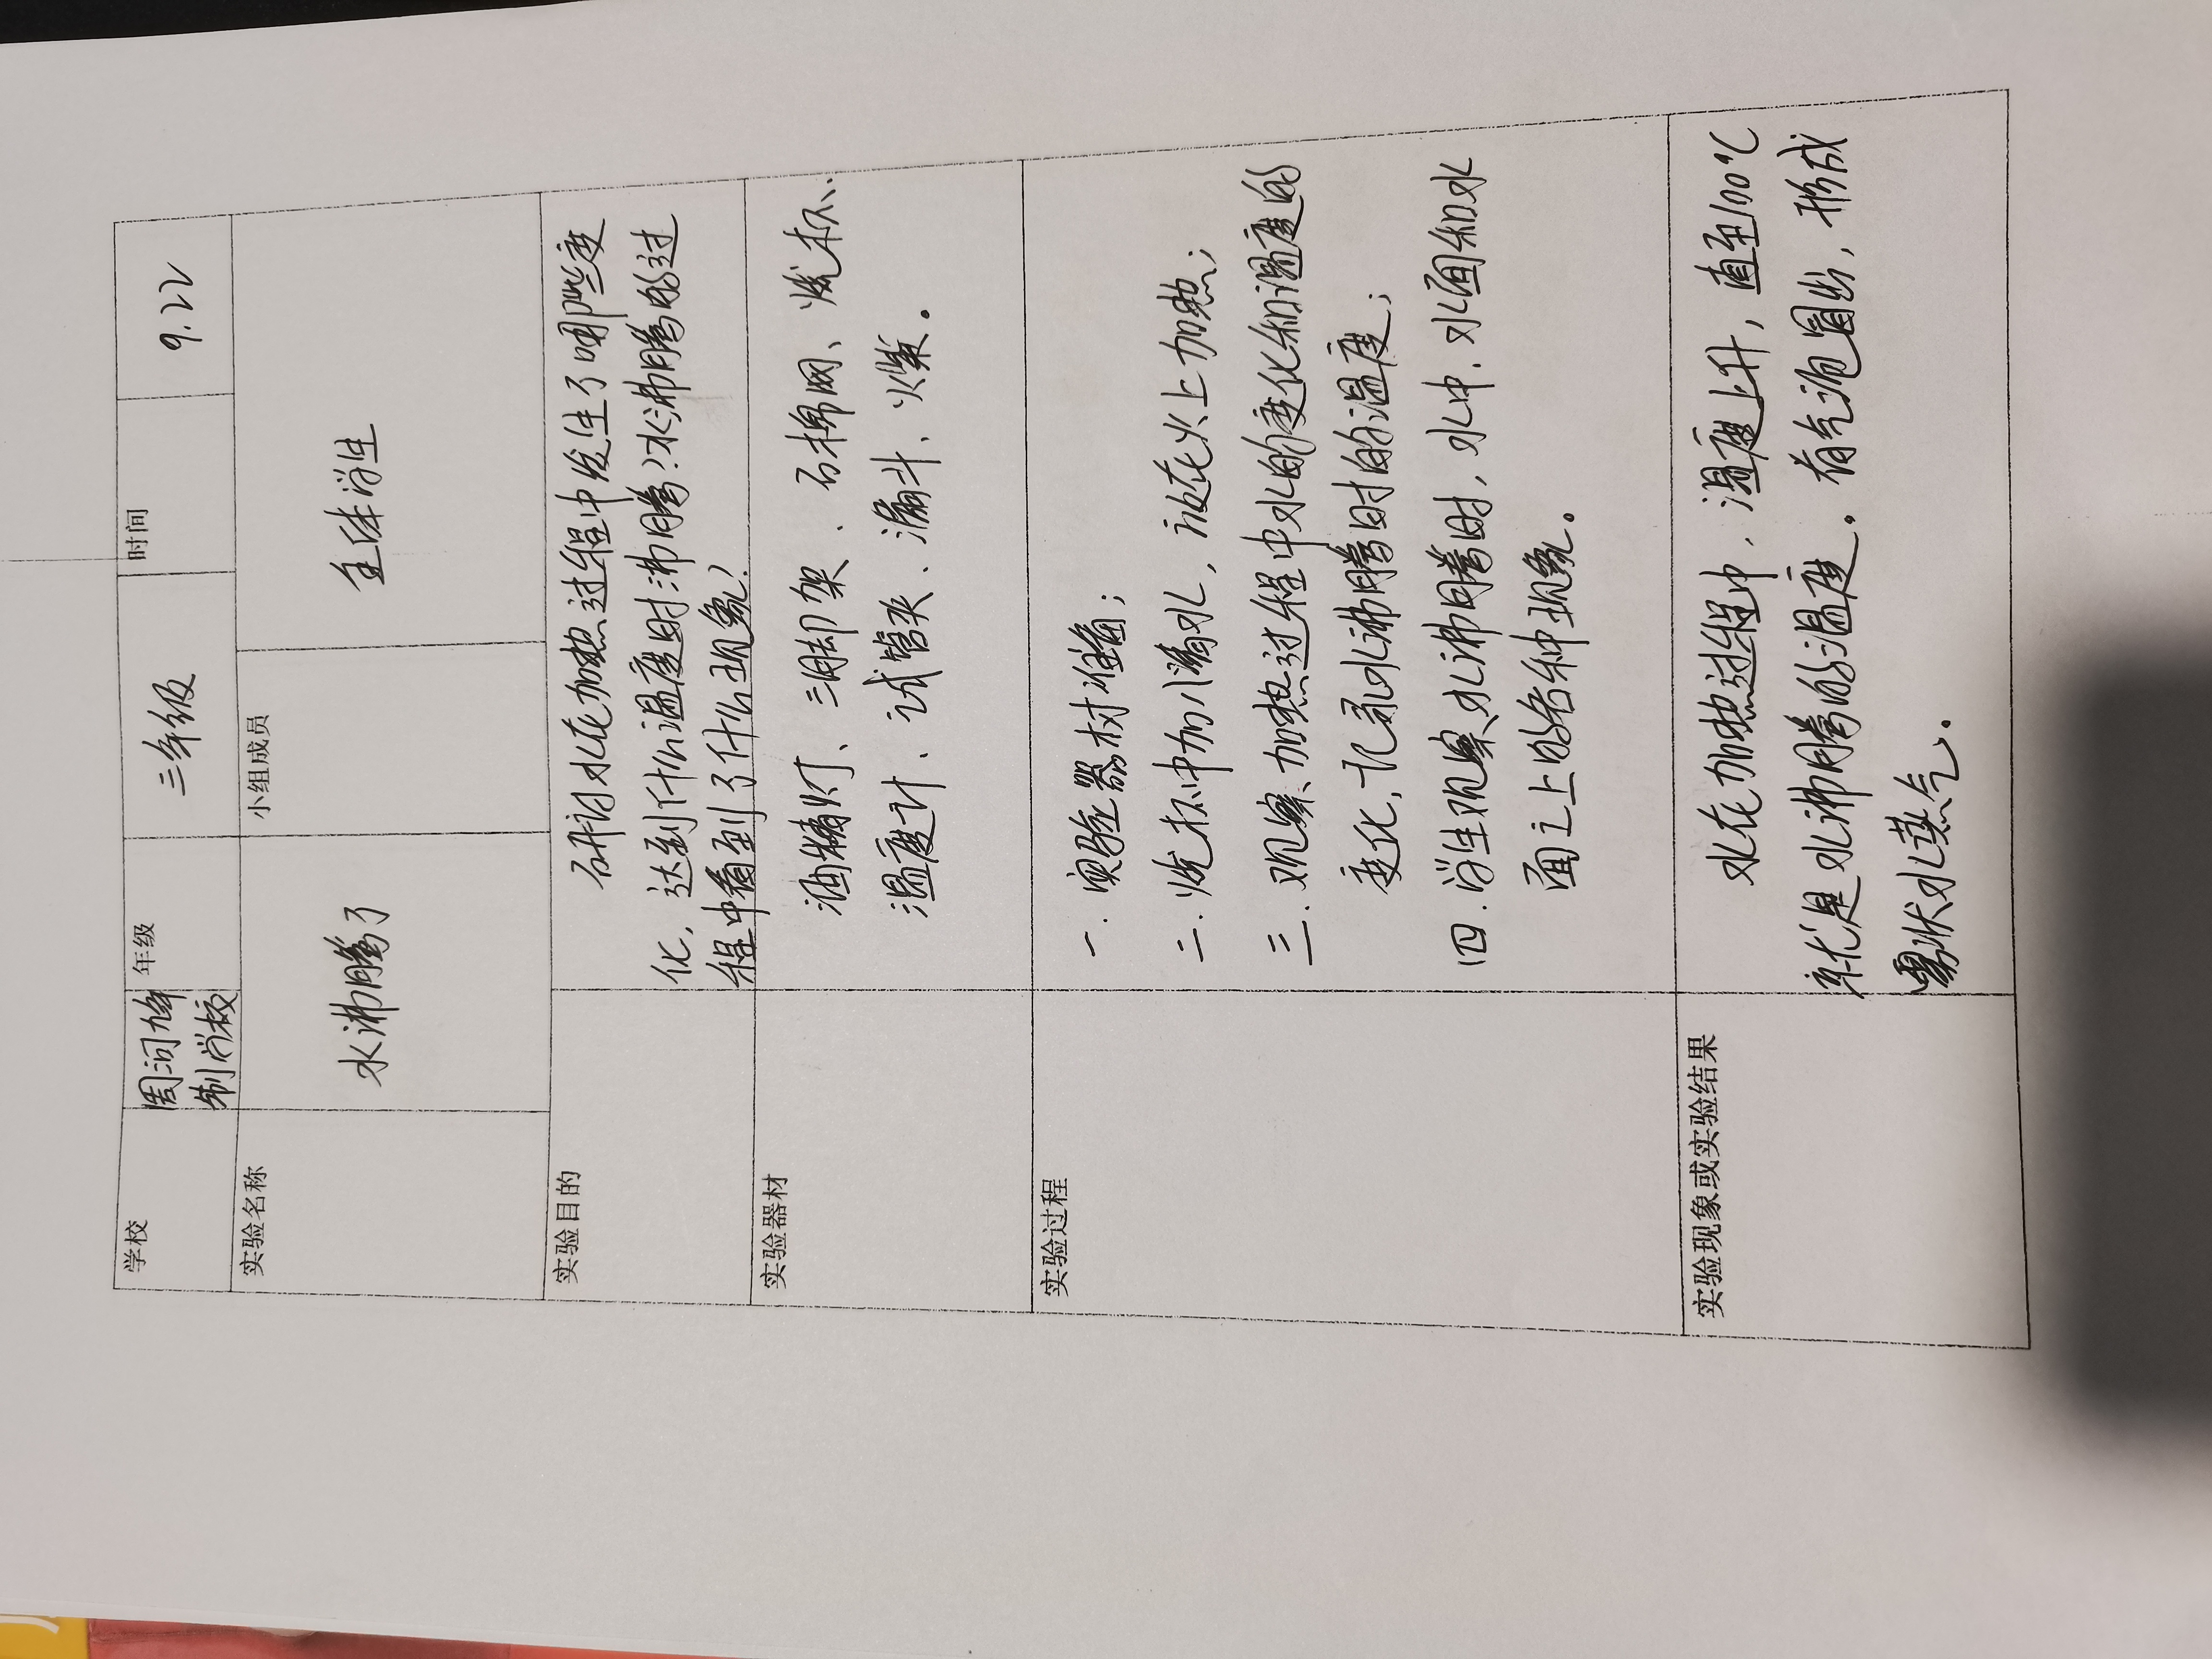 学校 周河九年 年级 三年级 时间 9.22
制学校
实验名称 水沸腾了 小组成员 全体学生
实验目的 研讨水在加热过程中发生了哪些变
化，达到什么温度时沸腾？水沸腾的过
程中看到了什么现象？
实验器材 酒精灯、三脚架、石棉网、烧杯、
温度计、试管夹、漏斗、火柴。
实验过程
一.实验器材准备；
二.烧杯中加清水，放在火上加热；
三.观察加热过程中水的变化和温度的
变化，记录水沸腾时的温度；
四.学生观察水沸腾时，水中、水面和水
面之上的各种现象。
实验现象或实验结果
水在加热过程中，温度上升，直至100℃
就是水沸腾的温度。有气泡冒出，形成
雾状水蒸气。